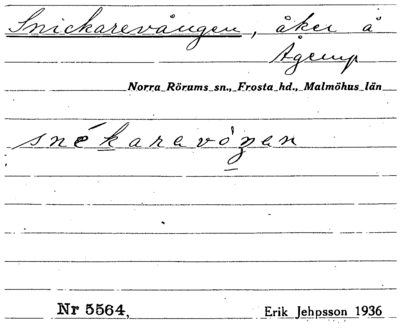 Snickarevången, åker å
Agerup
Norra Rörums sn., Frosta hd., Malmöhus län
snékaravóŋan
Nr 5564,
Erik Jehpsson 1936